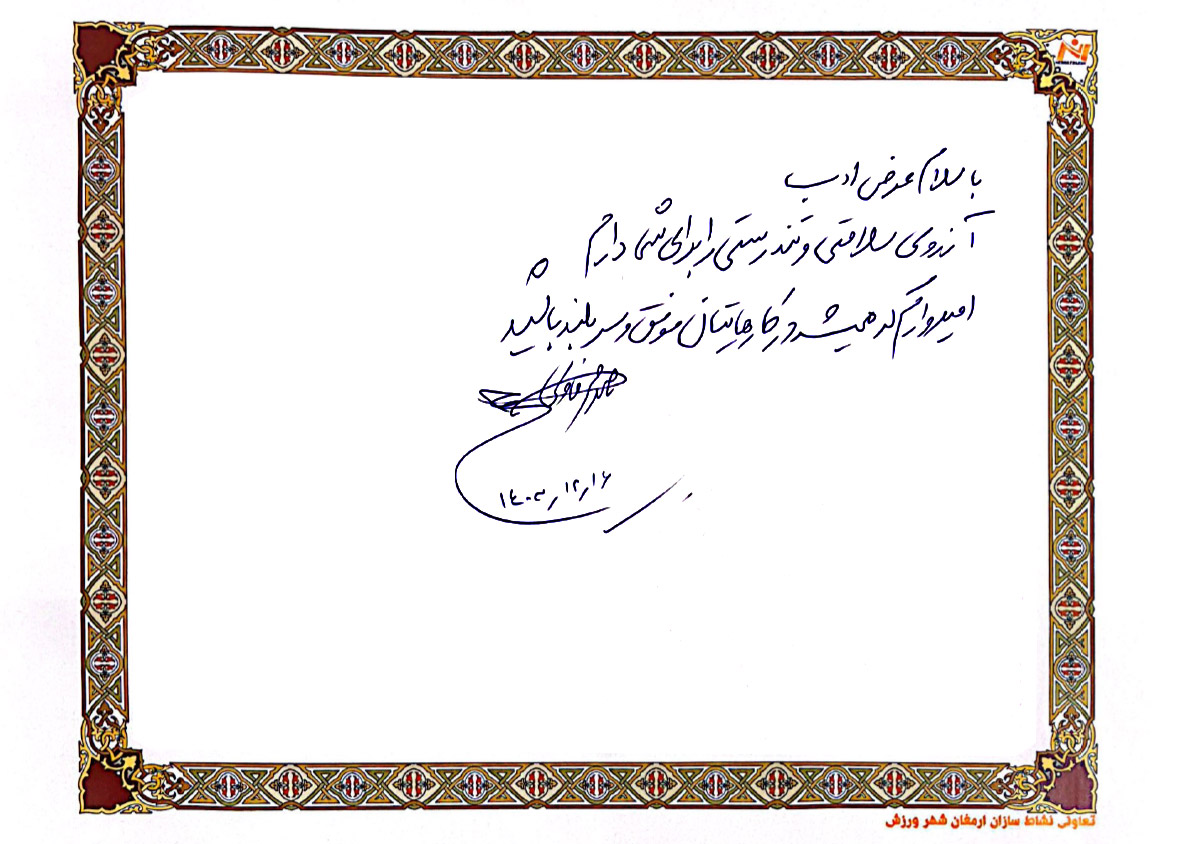 با سلام عرض ادب
آرزوی سلامتی و تندرستی را برای شما دارم
امیدوارم که همیشه در کارهایتان موفق و سربلند باشید
۱۴۰۳٫۱۲٫۱۶
تعاونی نشاط سازان ارمغان شهر ورزش